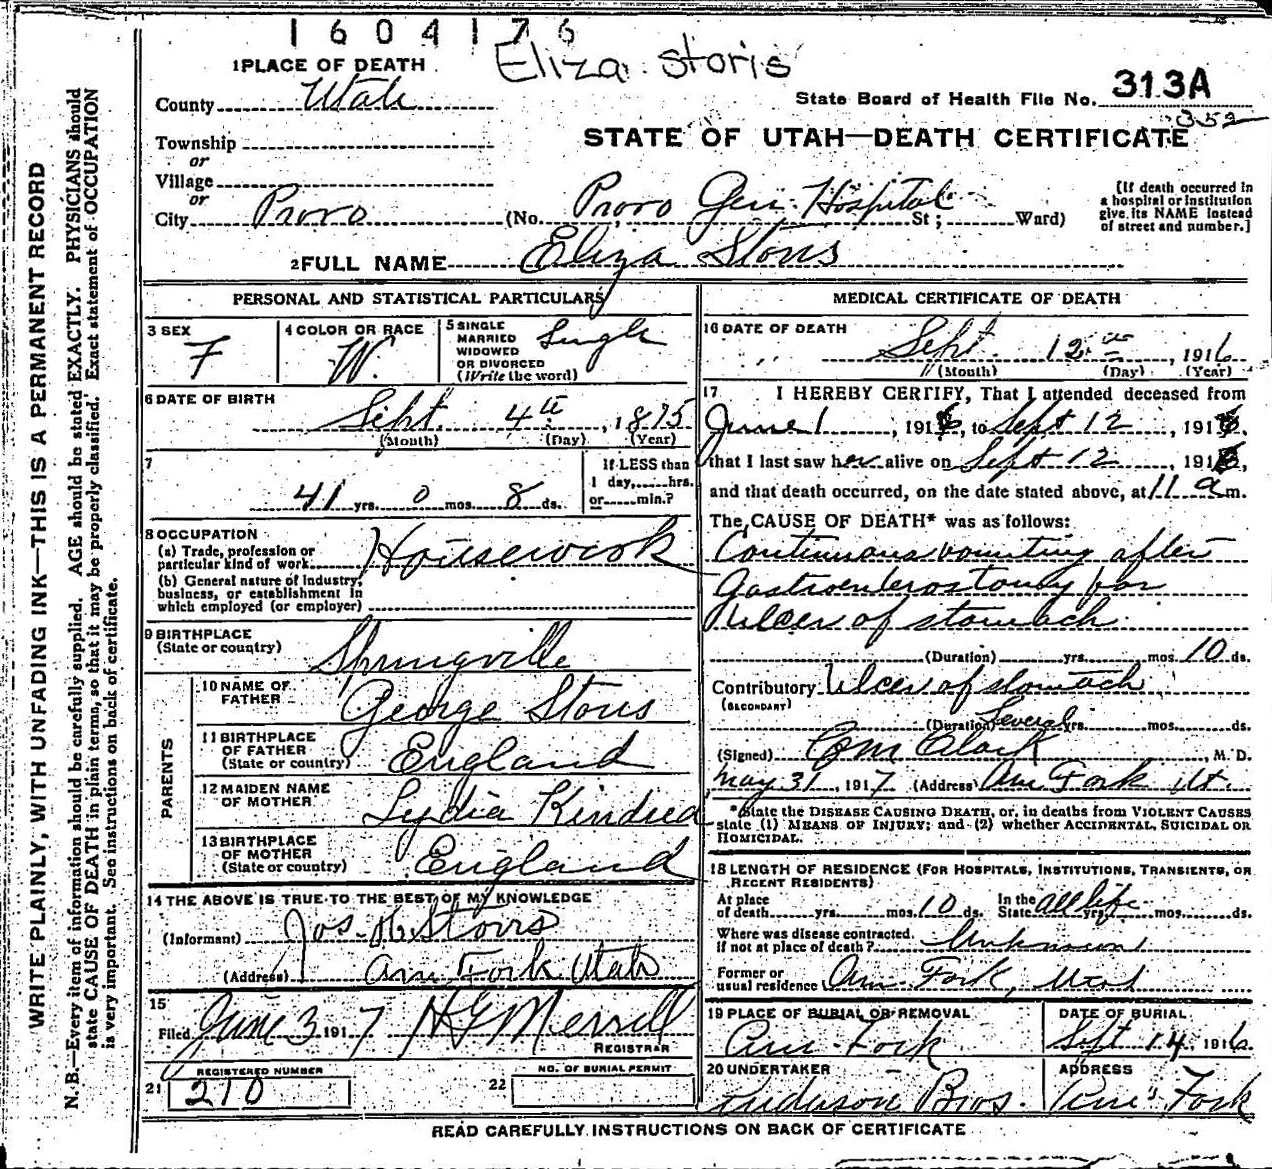 1604176
Eliza Storis
1 PLACE OF DEATH
County Utah
State Board of Health File No. 313A
352
STATE OF UTAH—DEATH CERTIFICATE
Township
or
Village
or
City Provo (No. Provo Gen. Hospital St; Ward)
[If death occurred in a hospital or institution give its NAME instead of street and number.]
2 FULL NAME Eliza Storis
PERSONAL AND STATISTICAL PARTICULARS
3 SEX F
4 COLOR OR RACE W.
5 SINGLE MARRIED WIDOWED OR DIVORCED (Write the word) Single
6 DATE OF BIRTH
Sept. 4th, 1875
(Month) (Day) (Year)
7
41 yrs. 0 mos. 8 ds.
If LESS than 1 day, hrs. or min.?
8 OCCUPATION
(a) Trade, profession or particular kind of work Housework
(b) General nature of industry, business, or establishment in which employed (or employer)
9 BIRTHPLACE
(State or country) Springville
PARENTS
10 NAME OF FATHER George Storis
11 BIRTHPLACE OF FATHER (State or country) England
12 MAIDEN NAME OF MOTHER Lydia Kindred
13 BIRTHPLACE OF MOTHER (State or country) England
14 THE ABOVE IS TRUE TO THE BEST OF MY KNOWLEDGE
(Informant) Jos. H. Storrs
(Address) Am Fork Utah
15
Filed June 3 1917 H G Merrill
REGISTRAR
REGISTERED NUMBER
21 210
NO. OF BURIAL PERMIT
22
MEDICAL CERTIFICATE OF DEATH
16 DATE OF DEATH
Sept. 12th, 1916
(Month) (Day) (Year)
17 I HEREBY CERTIFY, That I attended deceased from
June 1, 1916, to Sept 12, 1916,
that I last saw her alive on Sept 12, 1916,
and that death occurred, on the date stated above, at 11 a m.
The CAUSE OF DEATH* was as follows:
Continuous vomiting after
Gastroenterostomy for
Ulcer of stomach
(Duration) yrs. mos. 10 ds.
Contributory Ulcer of stomach
(SECONDARY)
(Duration) Several yrs. mos. ds.
(Signed) Clark M. D.
May 31, 1917 (Address) Am Fork Ut.
*State the DISEASE CAUSING DEATH, or, in deaths from VIOLENT CAUSES
state (1) MEANS OF INJURY; and (2) whether ACCIDENTAL, SUICIDAL OR
HOMICIDAL.
18 LENGTH OF RESIDENCE (FOR HOSPITALS, INSTITUTIONS, TRANSIENTS, OR
RECENT RESIDENTS)
At place of death yrs. mos. 10 ds. In the State all life yrs. mos. ds.
Where was disease contracted, if not at place of death? Unknown
Former or usual residence Am. Fork, Utah
19 PLACE OF BURIAL OR REMOVAL Am. Fork
DATE OF BURIAL Sept 14, 1916.
20 UNDERTAKER Anderson Bros.
ADDRESS Am Fork
READ CAREFULLY INSTRUCTIONS ON BACK OF CERTIFICATE
WRITE PLAINLY, WITH UNFADING INK—THIS IS A PERMANENT RECORD
N. B.—Every item of information should be carefully supplied. AGE should be stated EXACTLY. PHYSICIANS should
state CAUSE OF DEATH in plain terms, so that it may be properly classified. Exact statement of OCCUPATION
is very important. See instructions on back of certificate.